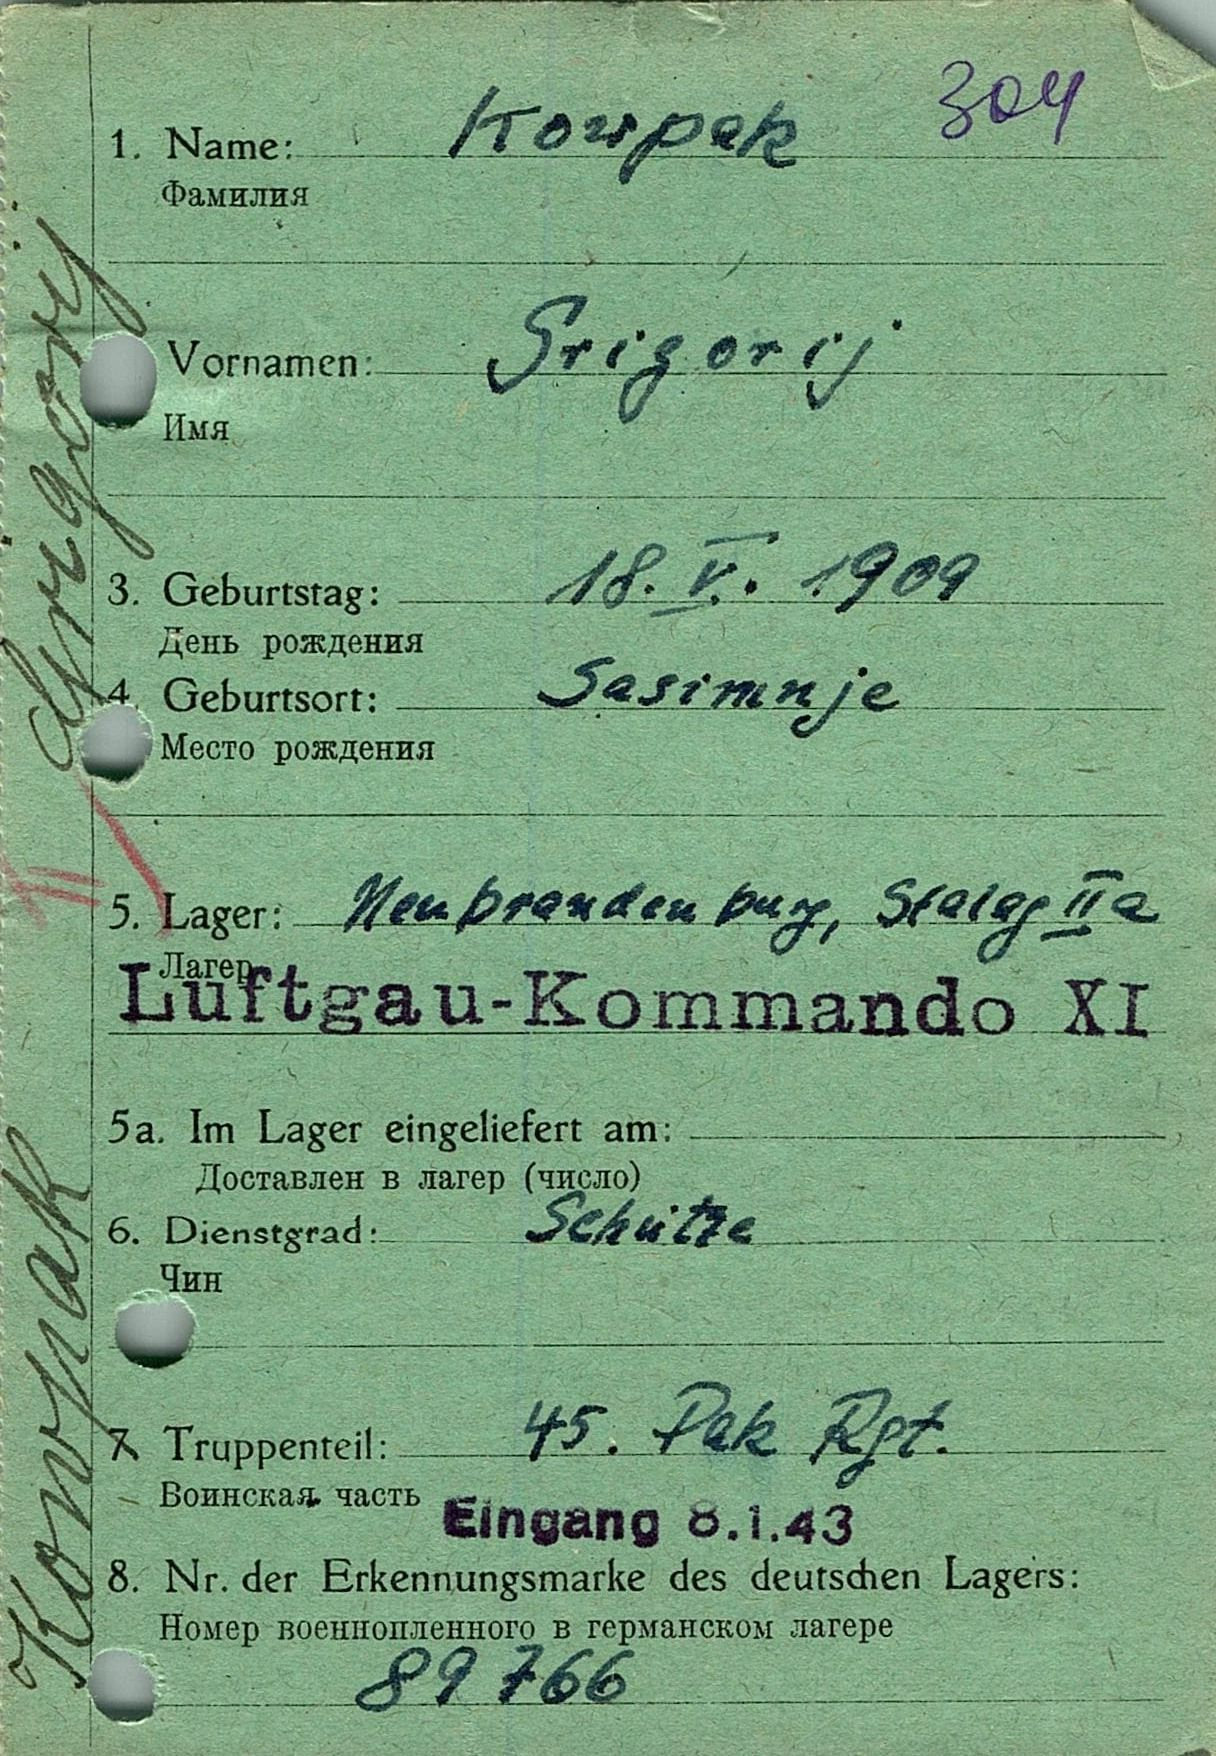 304
1. Name: Kowpak
Фамилия
Vornamen: Grigorij
Имя
3. Geburtstag: 18. V. 1909
День рождения
4 Geburtsort: Sasimnje
Место рождения
5. Lager: Neubrandenburg, Stalag II a
Лагер
Luftgau-Kommando XI
5a. Im Lager eingeliefert am:
Доставлен в лагер (число)
6. Dienstgrad: Schütze
Чин
7 Truppenteil: 45. Pak Rgt.
Воинская часть
Eingang 8.1.43
8. Nr. der Erkennungsmarke des deutschen Lagers:
Номер военнопленного в германском лагере
89766
Kowpak Grigorij